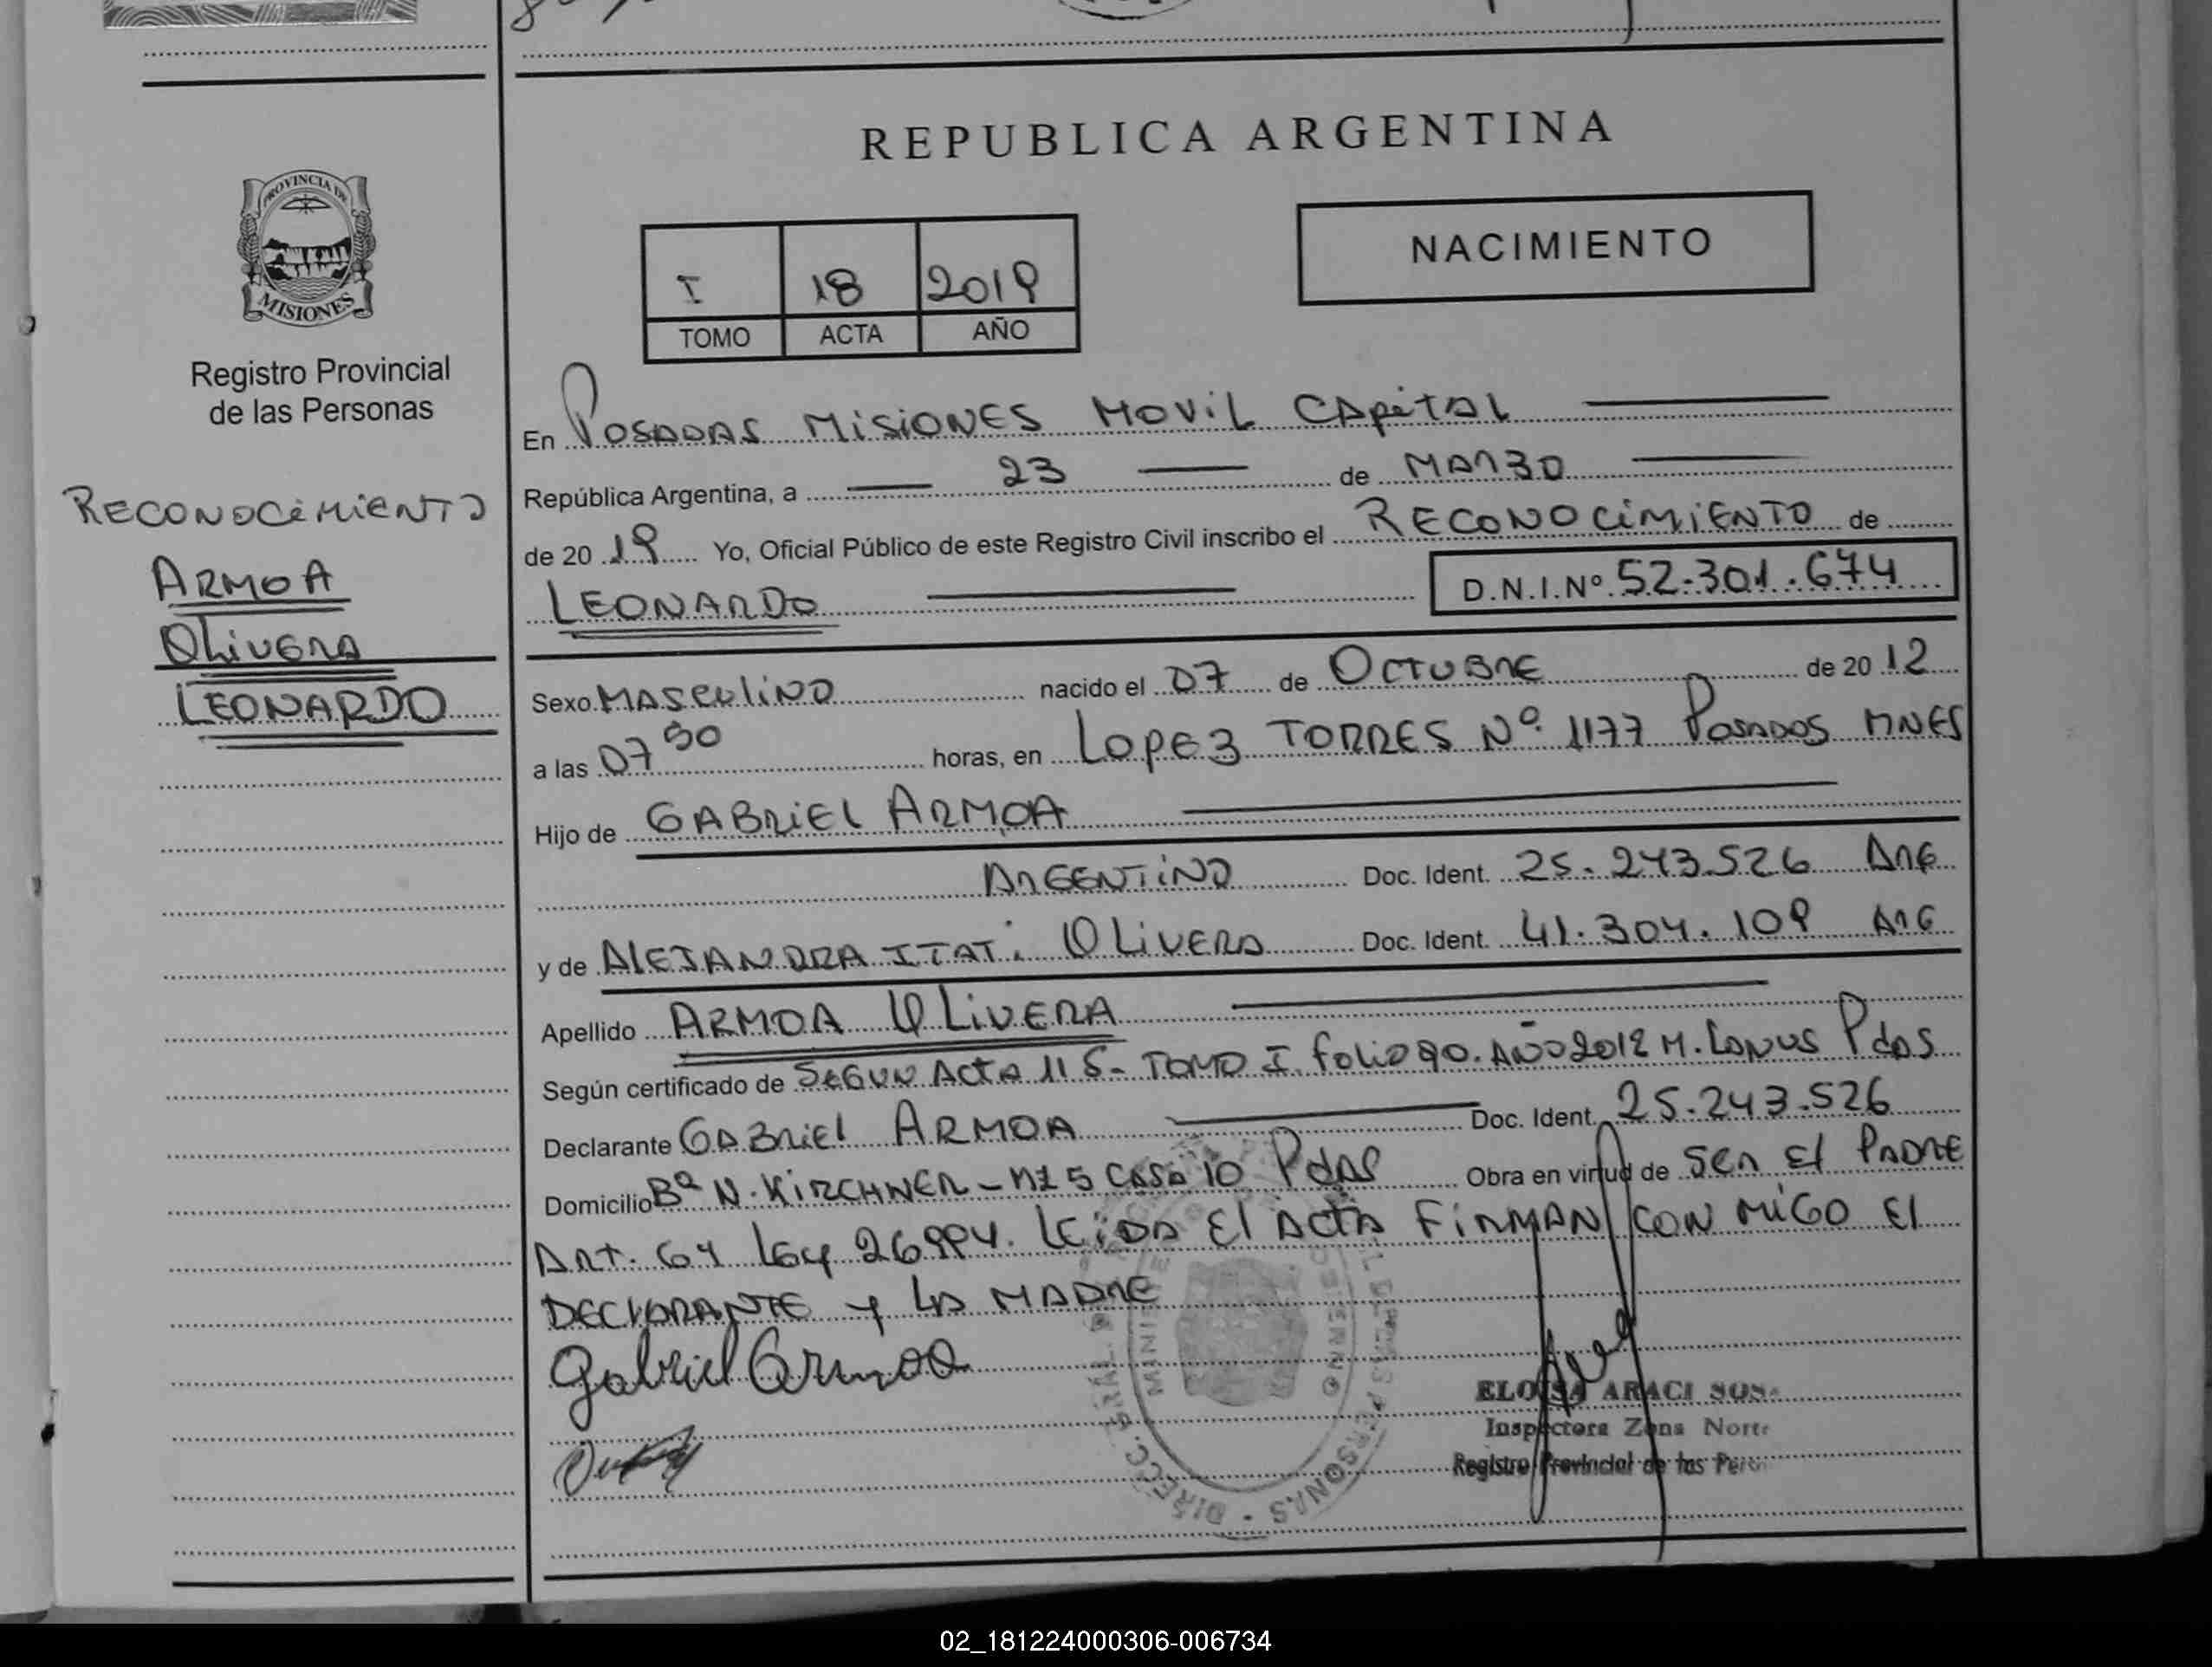 REPUBLICA ARGENTINA
NACIMIENTO
I 18 2019
TOMO ACTA AÑO
PROVINCIA DE
MISIONES
Registro Provincial
de las Personas
RECONOCiMiENTO
ARMOA
OLiVERA
LEONARDO
En POSADAS MiSiONES MOViL CApiTAL
República Argentina, a 23 de MARZO
de 20 19 Yo, Oficial Público de este Registro Civil inscribo el RECONOCiMiENTO de
LEONARDO D.N.I.Nº 52.301.674
Sexo MASCULiNO nacido el 07 de OCTUBRE de 20 12
a las 07 30 horas, en LOPEZ TORRES Nº 1177 POSADAS MNES
Hijo de GABRiEL ARMOA
ARGENTiNO Doc. Ident. 25.243.526 ARG
y de ALEJANDRA ITATi OLiVERA Doc. Ident. 41.304.109 ARG
Apellido ARMOA OLiVERA
Según certificado de SEGUN ACTA 115- TOMO I. foLiO 90. AÑO 2012 M. LANUS PdAS
Declarante GABRiEl ARMOA Doc. Ident. 25.243.526
Domicilio Bº N. KiRCHNER - MZ 5 CASA 10 PdAS Obra en virtud de SER El PADRE
ART. 64 Ley 26994. LEiDA El ACTA FiRMAN CON MiGO El
DECLARANTE y LA MADRE
Gabriel Armoa
ELOISA ARACI SOS
Inspectora Zona Norte
Registro Provincial de las Pers
02_181224000306-006734